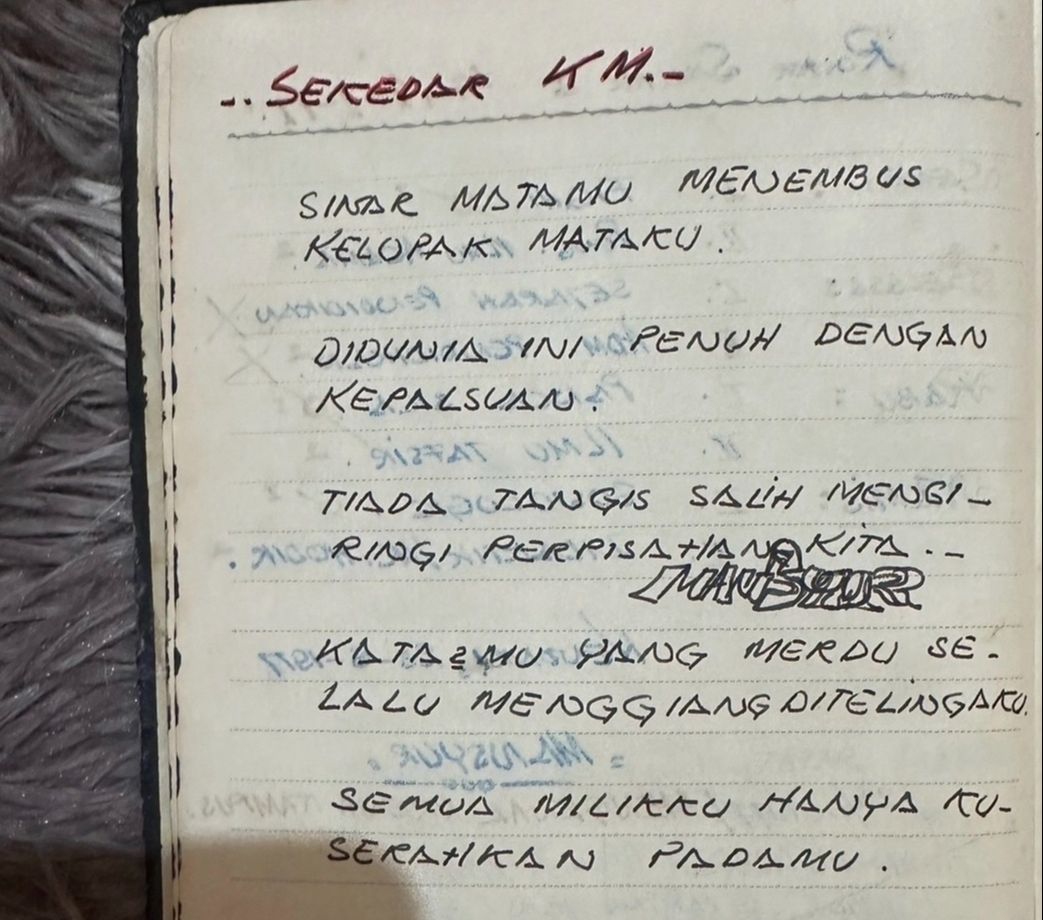 .. SEKEDAR KM.-
SINAR MATAMU MENEMBUS
KELOPAK MATAKU.
DIDUNIA INI PENUH DENGAN
KEPALSUAN.
TIADA TANGIS SALIH MENGI-
RINGI PERPISAHAN KITA.-
KATA2MU YANG MERDU SE-
LALU MENGGIANG DITELINGAKU.
SEMUA MILIKKU HANYA KU-
SERAHKAN PADAMU.